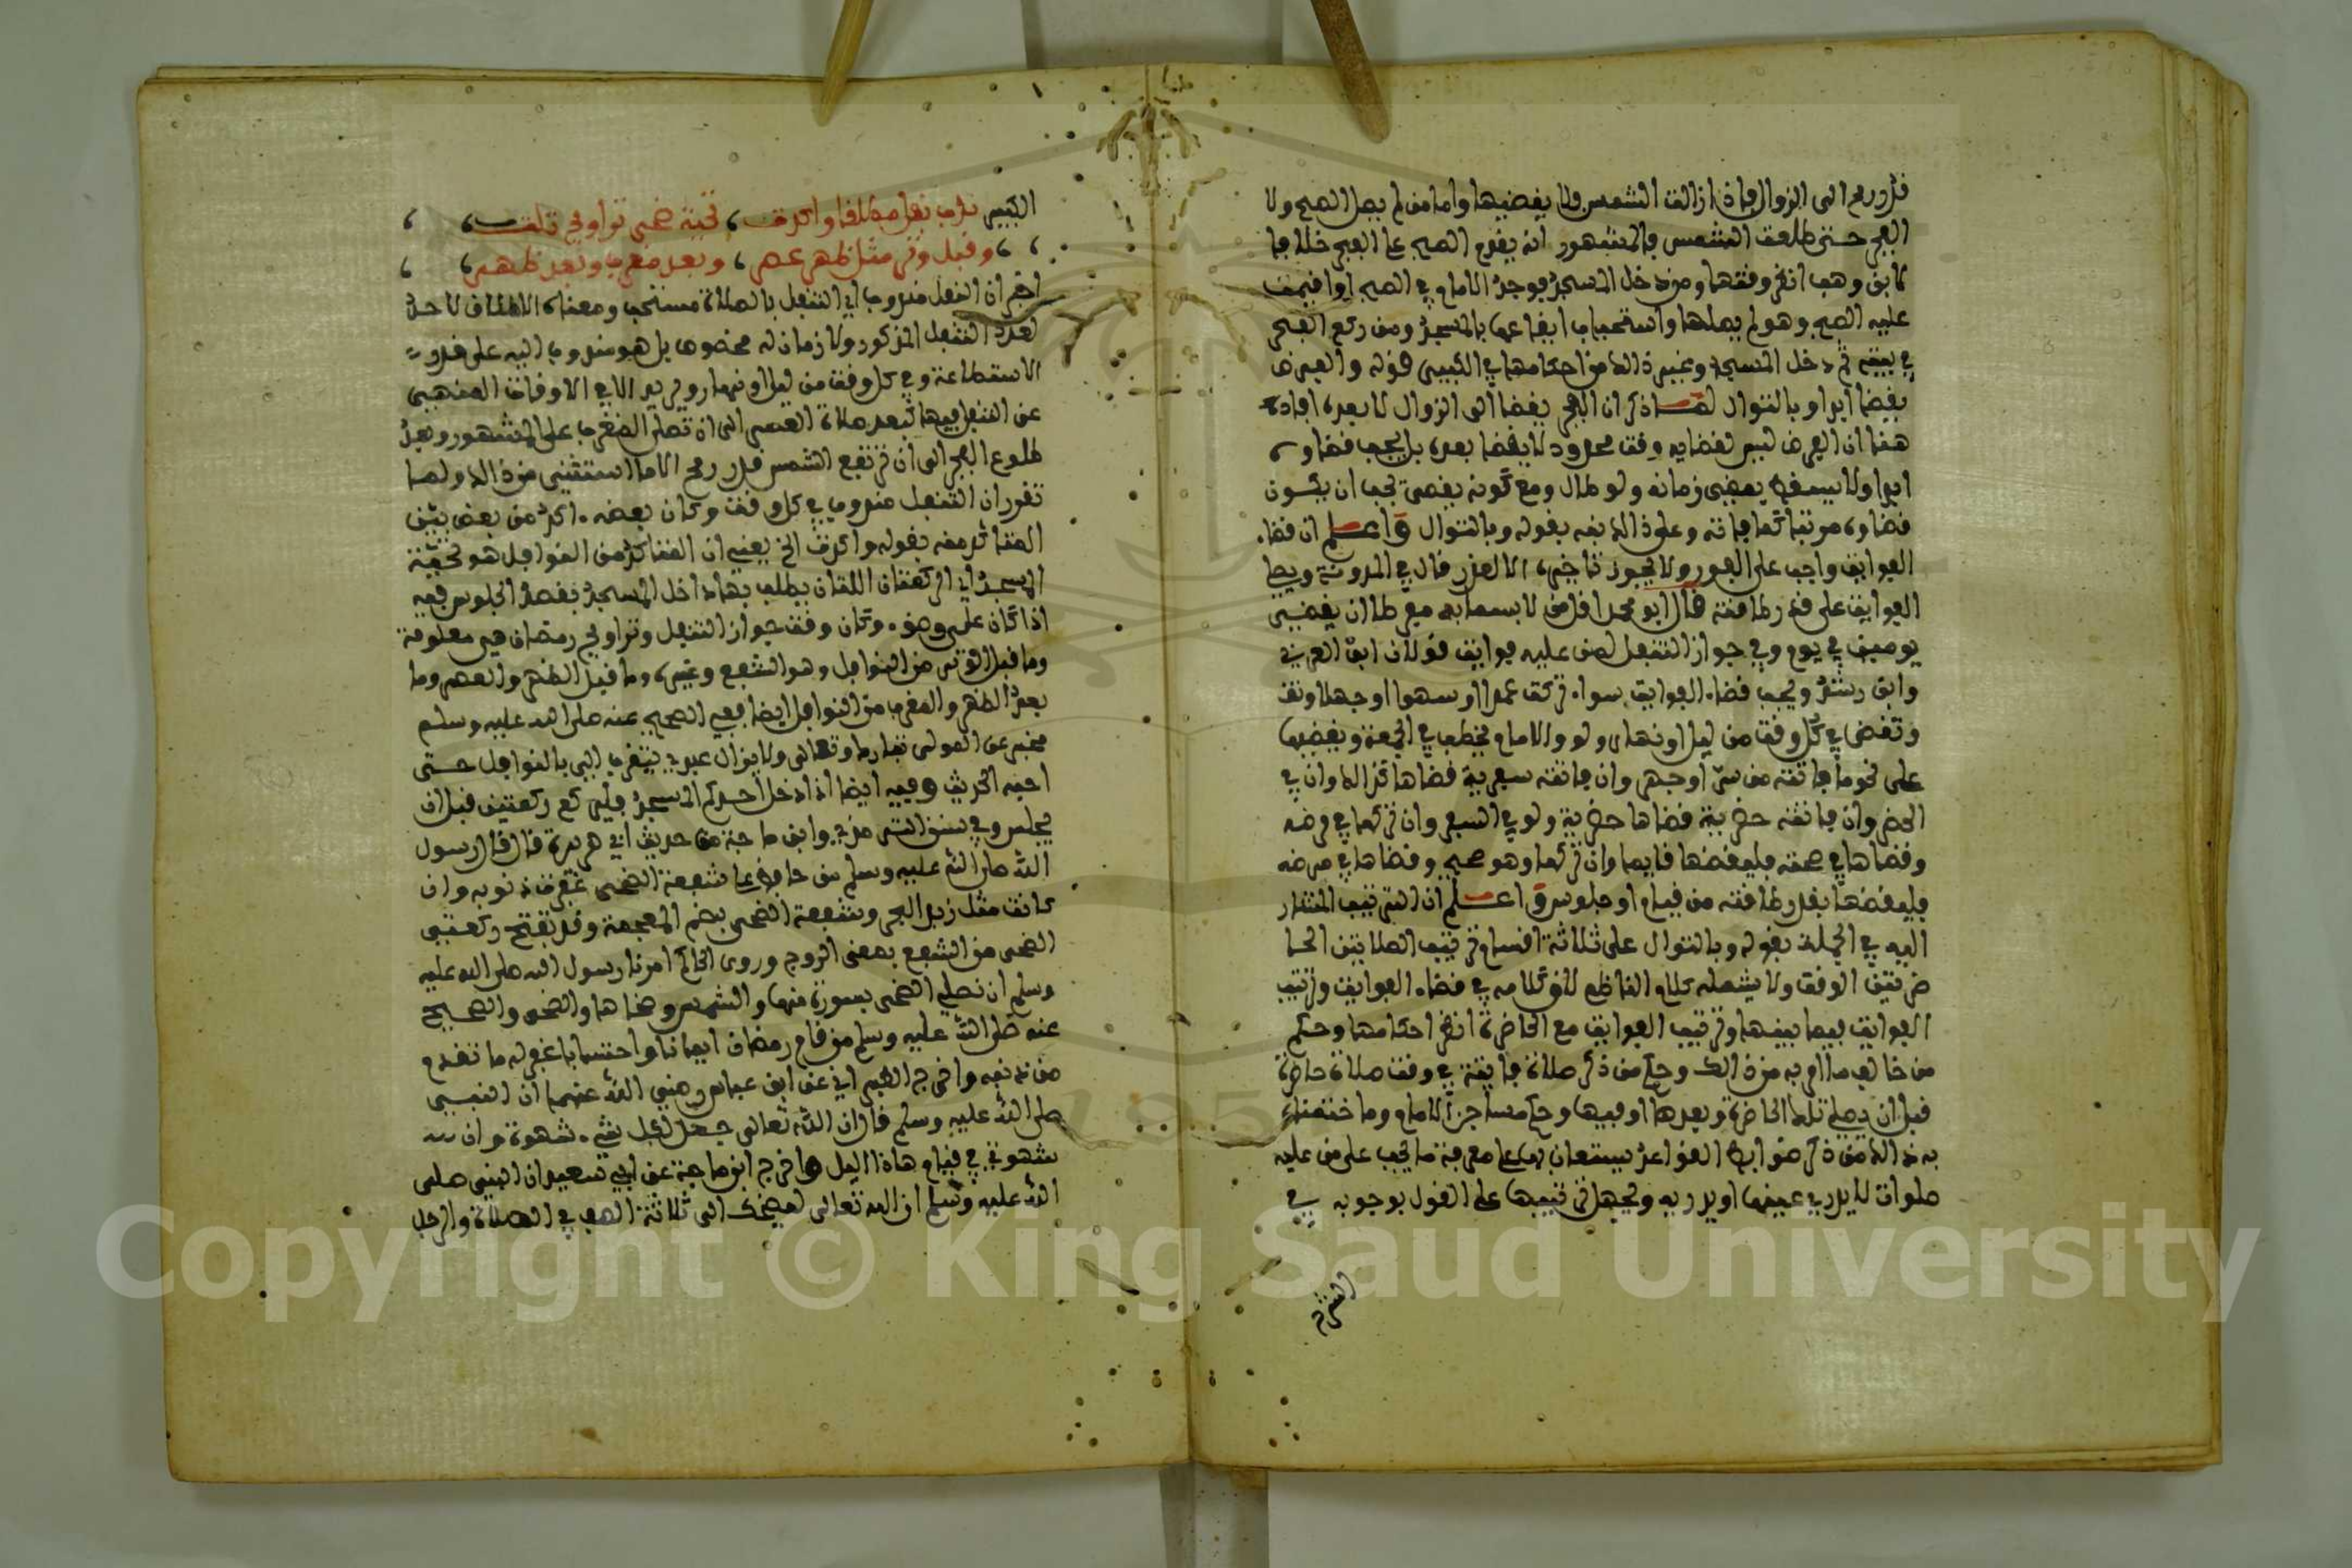 قدر رمح الى الزوال فإذا زالت الشمس فلا يقضيها وأما من لم يصل الصبح ولا
الفجر حتى طلعت الشمس فالمشهور انه يقدم الصبح على الفجر خلافا
لابن وهب انظر وقتها ومن دخل المسجد فوجد الامام في الصبح اوا فيمت
عليه الصبح وهو لم يصلها واستحباب ايقاعها بالمسجد ومن ركع الفجر
في بيته ثم دخل المسجد وغير ذالك من احكامها في الكبير قوله والفرض
يقضا ابدا وبالتوال لما ذكر ان الفجر يقضا الى الزوال لا بعده افاد
هنا ان الفرض ليس لقضايه وقت محدود لا يقضا بعده بل يجب قضاوه
ابدا ولا يسقط بمضي زمانه ولو طال ومع كونه يقضى يجب ان يكون
قضاوه مرتبا كما فاته وعلى ذالك نبه بقوله وبالتوال واعلم ان قضاء
الفوايت واجب على الفور ولا يجوز تاخيره الا لعذر قال في المدونة ويصلي
الفوايت على قدر طاقته قال ابو محمد اقل من لا يسما به مفرطا ان يقضي
يومين في يوم وفي جواز التنفل لمن عليه فوايت قولان ابن العربي
وابن رشد ويجب قضاء الفوايت سواء تركت عمدا او سهوا او جهلا
وتقضى في كل وقت من ليل او نهار ولو والامام يخطب في الجمعة ويقضيها
على نحو ما فاتته من سر او جهر وان فاتته سفرية قضاها كذالك وان في
الحضر وان فاتته حضرية قضاها حضرية ولو في السفر وان تركها في مرضه
وقضاها في صحته فليقضها قايما وان تركها وهو صحيح وقضاها في مرضه
فليقضها بقدر طاقته من قيام او جلوس واعلم ان الترتيب المشار
اليه في الجملة بقوله وبالتوال على ثلاثة اقسام ترتيب الصلاتين الحا
ضرتين الوقت ولا يشمله كلام الناظم لان كلامه في قضاء الفوايت وترتيب
الفوايت فيما بينها وترتيب الفوايت مع الحاضرة انظر احكامها وحكم
من خالف ما امر به من ذالك وحكم من ذكر صلاة فايتة في وقت صلاة حاضرة
قبل ان يصلي تلك الحاضرة وبعدها او فيها وحكم مساجن الامام وما ختمناه
به ذالك من ذكر ضوابط القواعد يستعان بها على معرفة ما يجب على من عليه
صلوات لا يدري عينها او يدريه ويجهل ترتيبها على القول بوجوبه في
الشرح
الكبير ندب نفل مطلقا واكدت، تحية ضحى تراويح تلت،
، ،وقبل وتر مثل ظهر عصر، وبعد مغرب وبعد ظهر،
اخبر ان النفل مندوب اي التنفل بالصلاة مستحب ومعناه الاطلاق لا حد
لعدد التنفل المذكور ولا زمان له مخصوص بل هو مندوب اليه على قدر
الاستطاعة وفي كل وقت من ليل او نهار ويريد الا في الاوقات المنهي
عن التنفل فيها كبعد صلاة العصر الى ان تصلى المغرب على المشهور وبعد
طلوع الفجر الى ان ترتفع الشمس قدر رمح الا ما استثنى من ذالك ولما
تقرر ان التنفل مندوب في كل وقت وكان بعضه اكد من بعض بين
المتاكد منه بقوله واكدت الخ يعني ان المتاكد من النوافل هو تحية
المسجد اي الركعتان اللتان يطلب بهما داخل المسجد بقصد الجلوس فيه
اذا كان على وضوء وكان وقت جواز التنفل وتراويح رمضان هي معلومة
وما قبل الوتر من النوافل وهو الشفع وغيره وما قبل الظهر والعصر وما
بعد الظهر والمغرب من النوافل ايضا ففي الصحيح عنه صلى الله عليه وسلم
مخبرا عن المولى تبارك وتعالى ولا يزال عبدي يتقرب الي بالنوافل حتى
احبه الحديث وفيه ايضا اذا دخل احدكم المسجد فليركع ركعتين قبل ان
يجلس وفي سنن الترمذي وابن ماجة من حديث ابي هريرة قال قال رسول
الله صلى الله عليه وسلم من حافظ على شفعة الضحى غفرت ذنوبه وان
كانت مثل زبد البحر وشفعة الضحى بضم المعجمة وقد تفتح ركعتي
الضحى من الشفع بمعنى الزوج وروى الحاكم امرنا رسول الله صلى الله عليه
وسلم ان نصلي الضحى بسورة منها والشمس وضحاها والضحى والصحيح
عنه صلى الله عليه وسلم من قام رمضان ايمانا واحتسابا غفر له ما تقدم
من ذنبه واخرج الطبراني عن ابن عباس رضي الله عنهما ان النبي
صلى الله عليه وسلم قال ان الله تعالى جعل لكل شيء شهوة وان
شهوتي في قيام هاذا اليل واخرج ابن ماجة عن ابي سعيد ان النبي صلى
الله عليه وسلم ان الله تعالى ليضحك الى ثلاثة الصف في الصلاة والرجل
Copyright © King Saud University